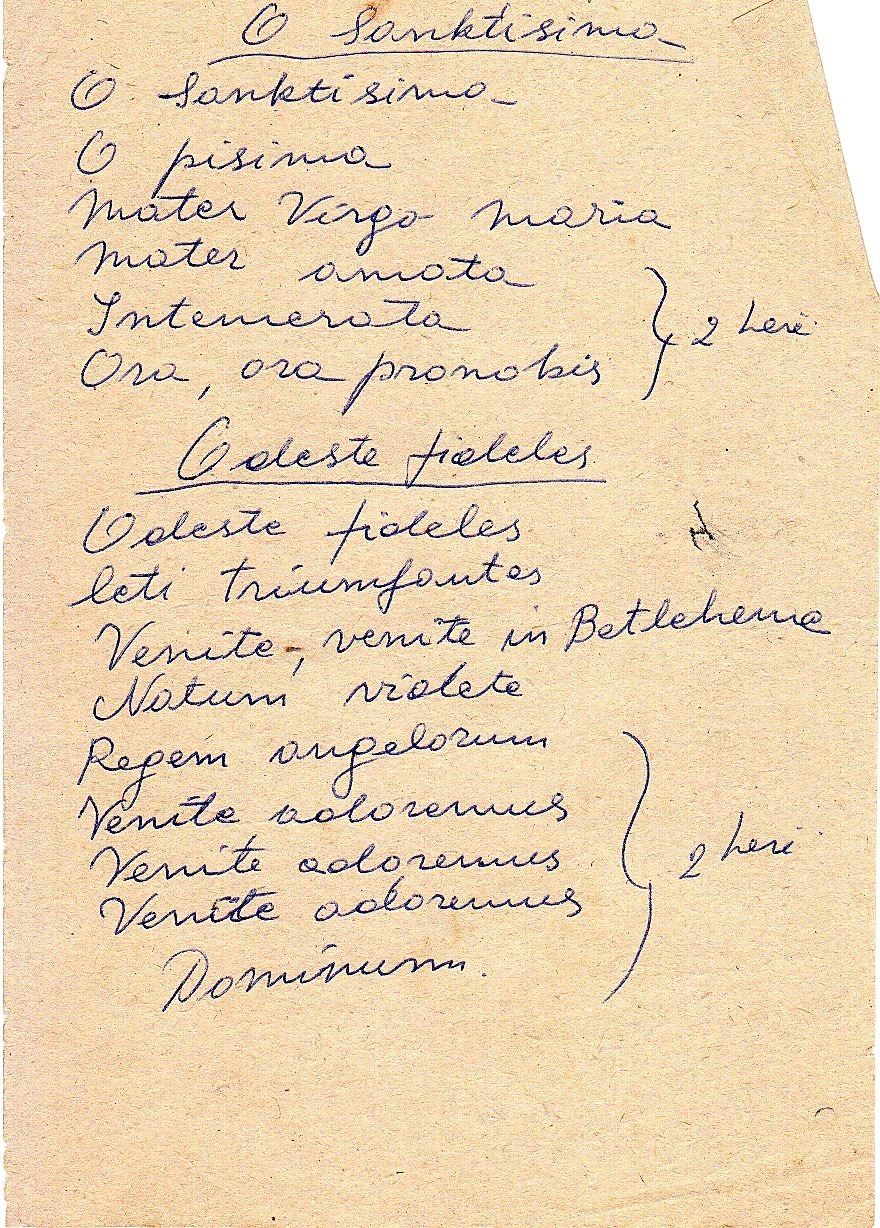 O Sanktisima
O Sanktisima
O pisima
Mater Virgo Maria
Mater amata
Intemerata
Ora, ora pronobis
2 herë
Odeste fideles
Odeste fideles
leti triumfantes
Venite, venite in Betlehema
Natum videte
Regem angelorum
Venite adoremus
Venite adoremus
Venite adoremus
Dominum.
2 herë